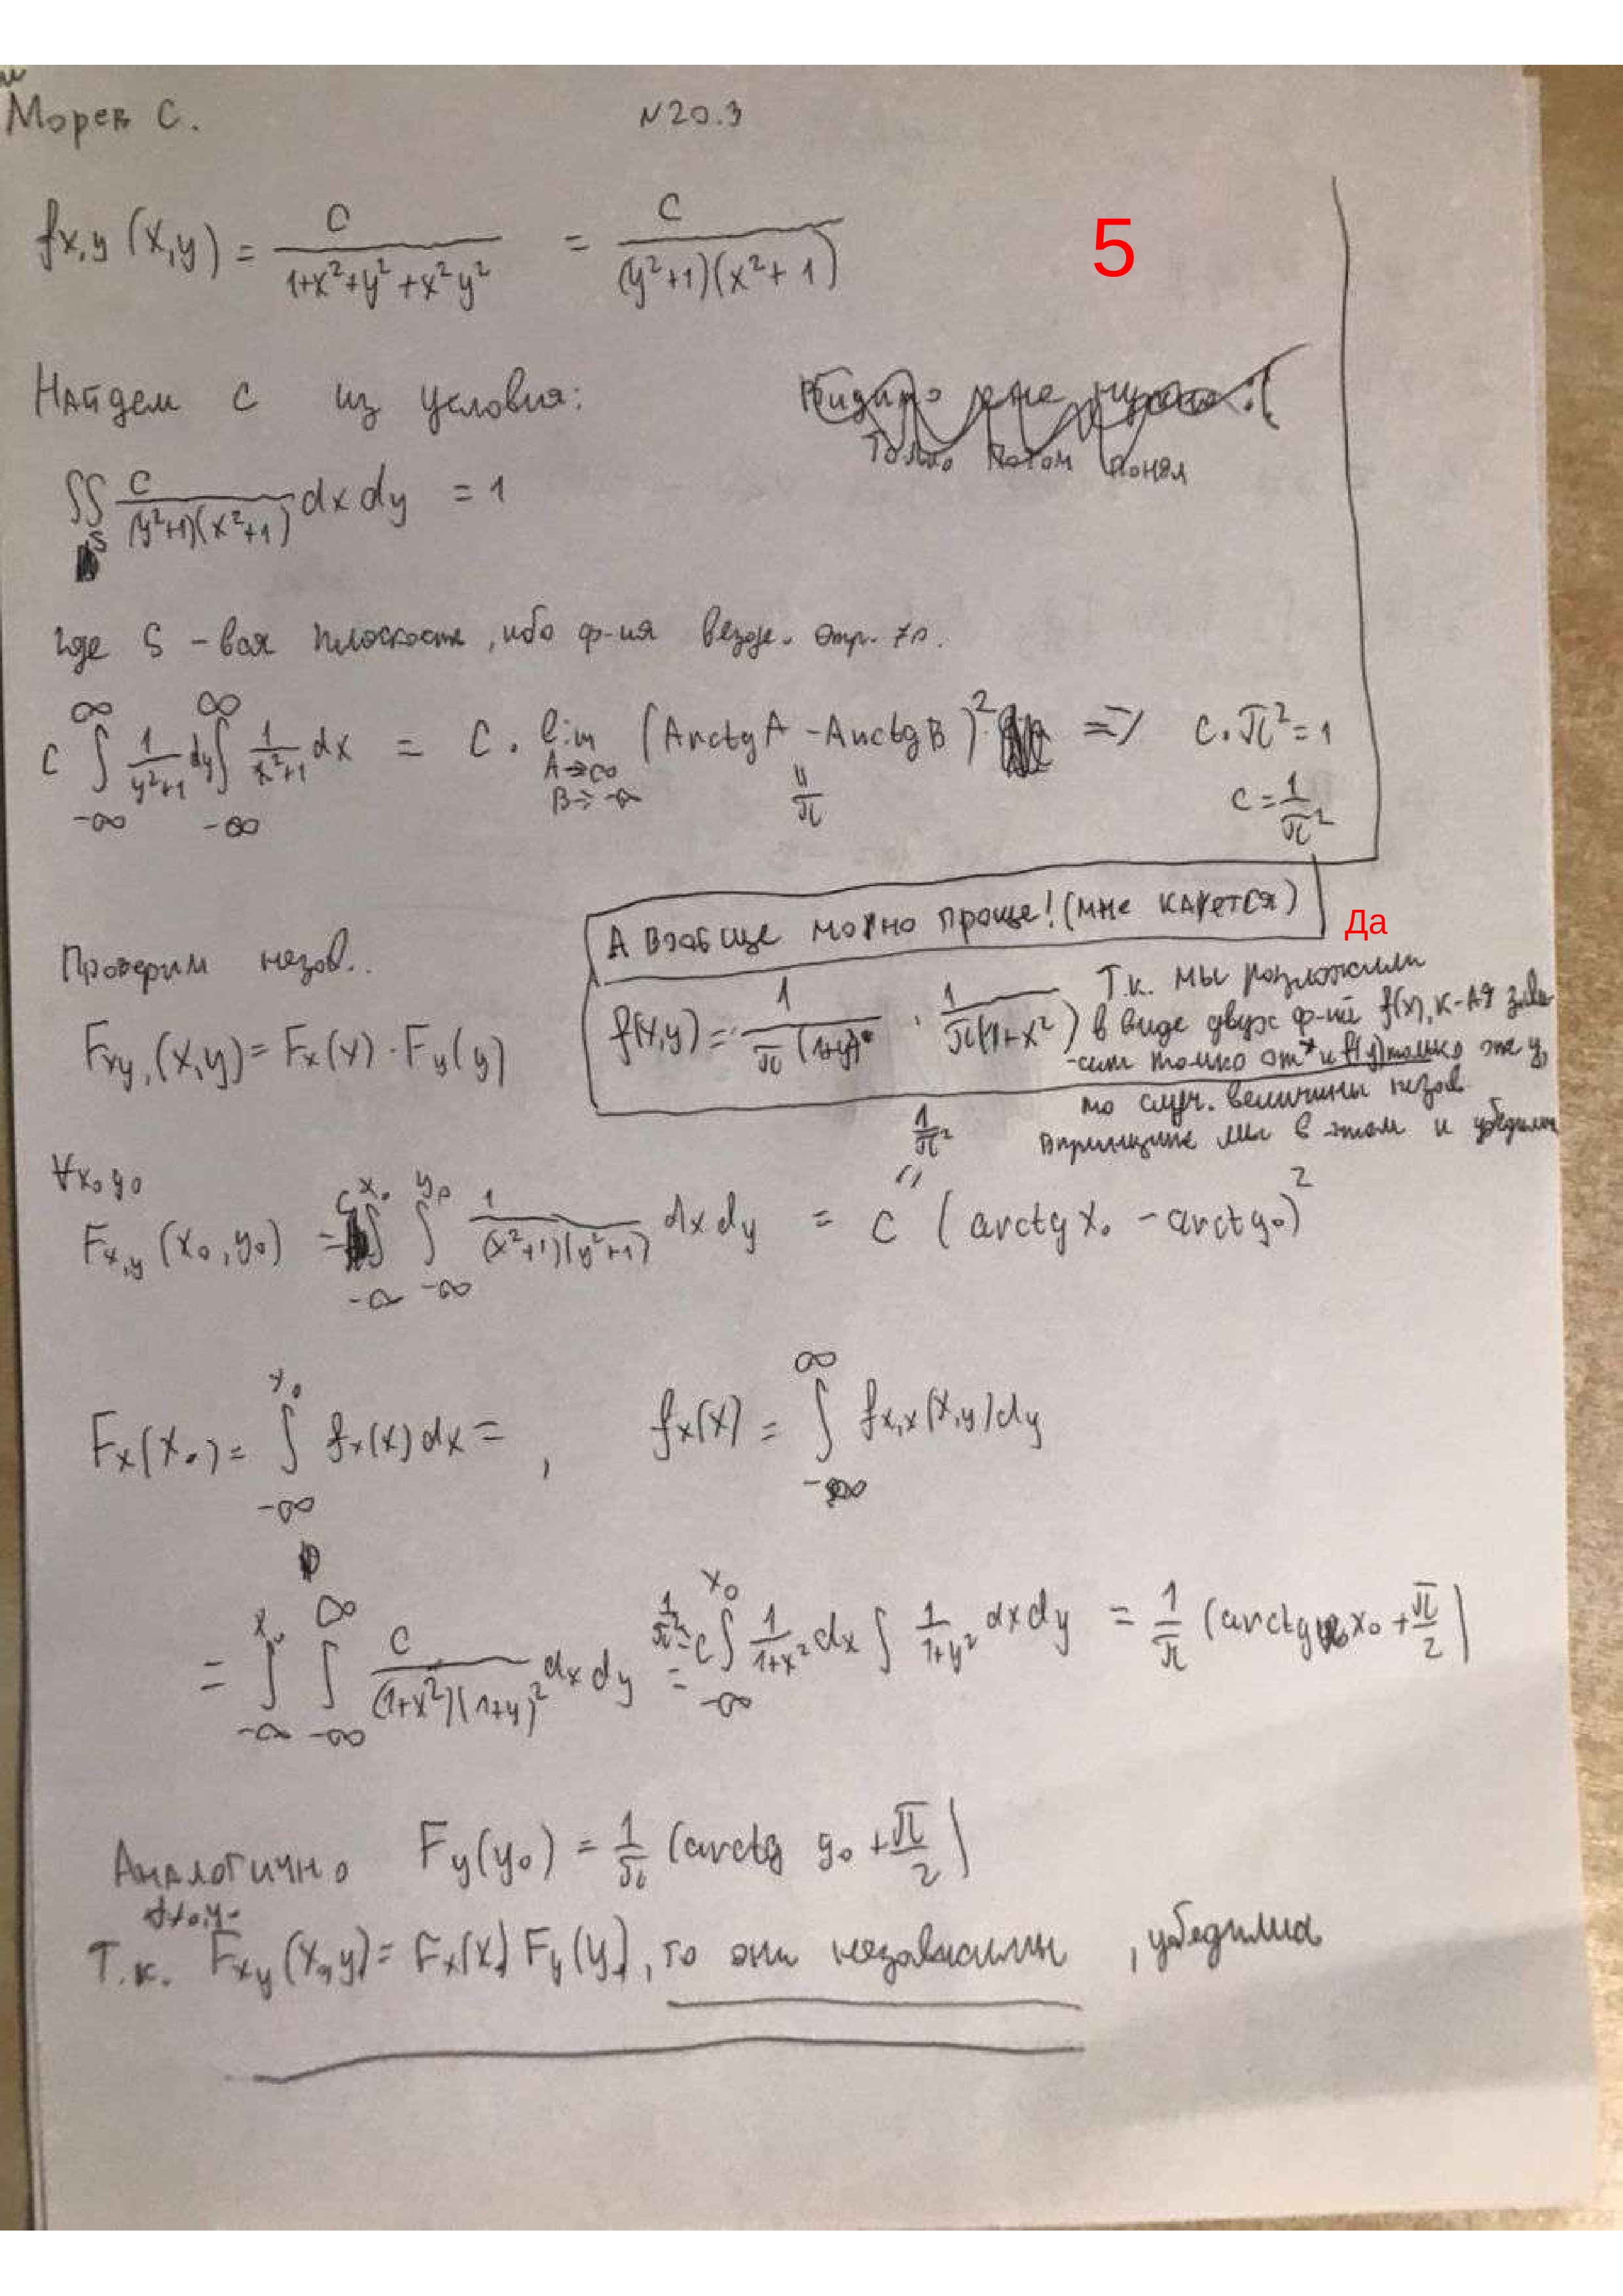 Морев С.
N20.3
fx,y (x,y) = C / (1+x²+y²+x²y²) = C / ((y²+1)(x²+1))
5
Найдем C из условия:
Только потом понял
∬_S C / ((y²+1)(x²+1)) dx dy = 1
где S - вся плоскость, ибо ф-ия везде. опр. ≠0.
C ∫_{-∞}^{∞} 1/(y²+1) dy ∫_{-∞}^{∞} 1/(x²+1) dx = C · lim_{A→∞ B→-∞} (Arctg A - Arctg B)² => C·π² = 1
π
C = 1/π²
А вообще можно проще! (мне кажется)
Да
Проверим незав..
f(x,y) = 1/(π(1+y)²) · 1/(π(1+x²))
Т.к. мы разложили
в виде двух ф-ий f(x), к-ая зави
-сит только от x и f(y) только от y,
то случ. величины незав
впринципе мы в этом и убедились
Fxy,(x,y) = Fx(x) · Fy(y)
∀x₀y₀
1/π²
Fx,y (x₀,y₀) = C ∫_{-∞}^{x₀} ∫_{-∞}^{y₀} 1/((x²+1)(y²+1)) dx dy = C (arctg x₀ - arctg y₀)²
Fx(x₀) = ∫_{-∞}^{x₀} fx(x) dx = , fx(x) = ∫_{-∞}^{∞} fx,x(x,y) dy
= ∫_{-∞}^{x₀} ∫_{-∞}^{∞} C/((1+x²)(1+y)²) dx dy = 1/π²=C ∫_{-∞}^{x₀} 1/(1+x²) dx ∫ 1/(1+y²) dx dy = 1/π (arctg x₀ + π/2)
Аналогично Fy(y₀) = 1/π (arctg y₀ + π/2)
∀x₀,y₀
Т.к. Fxy(x₀,y) = Fx(x) Fy(y), то они независимы, убедились